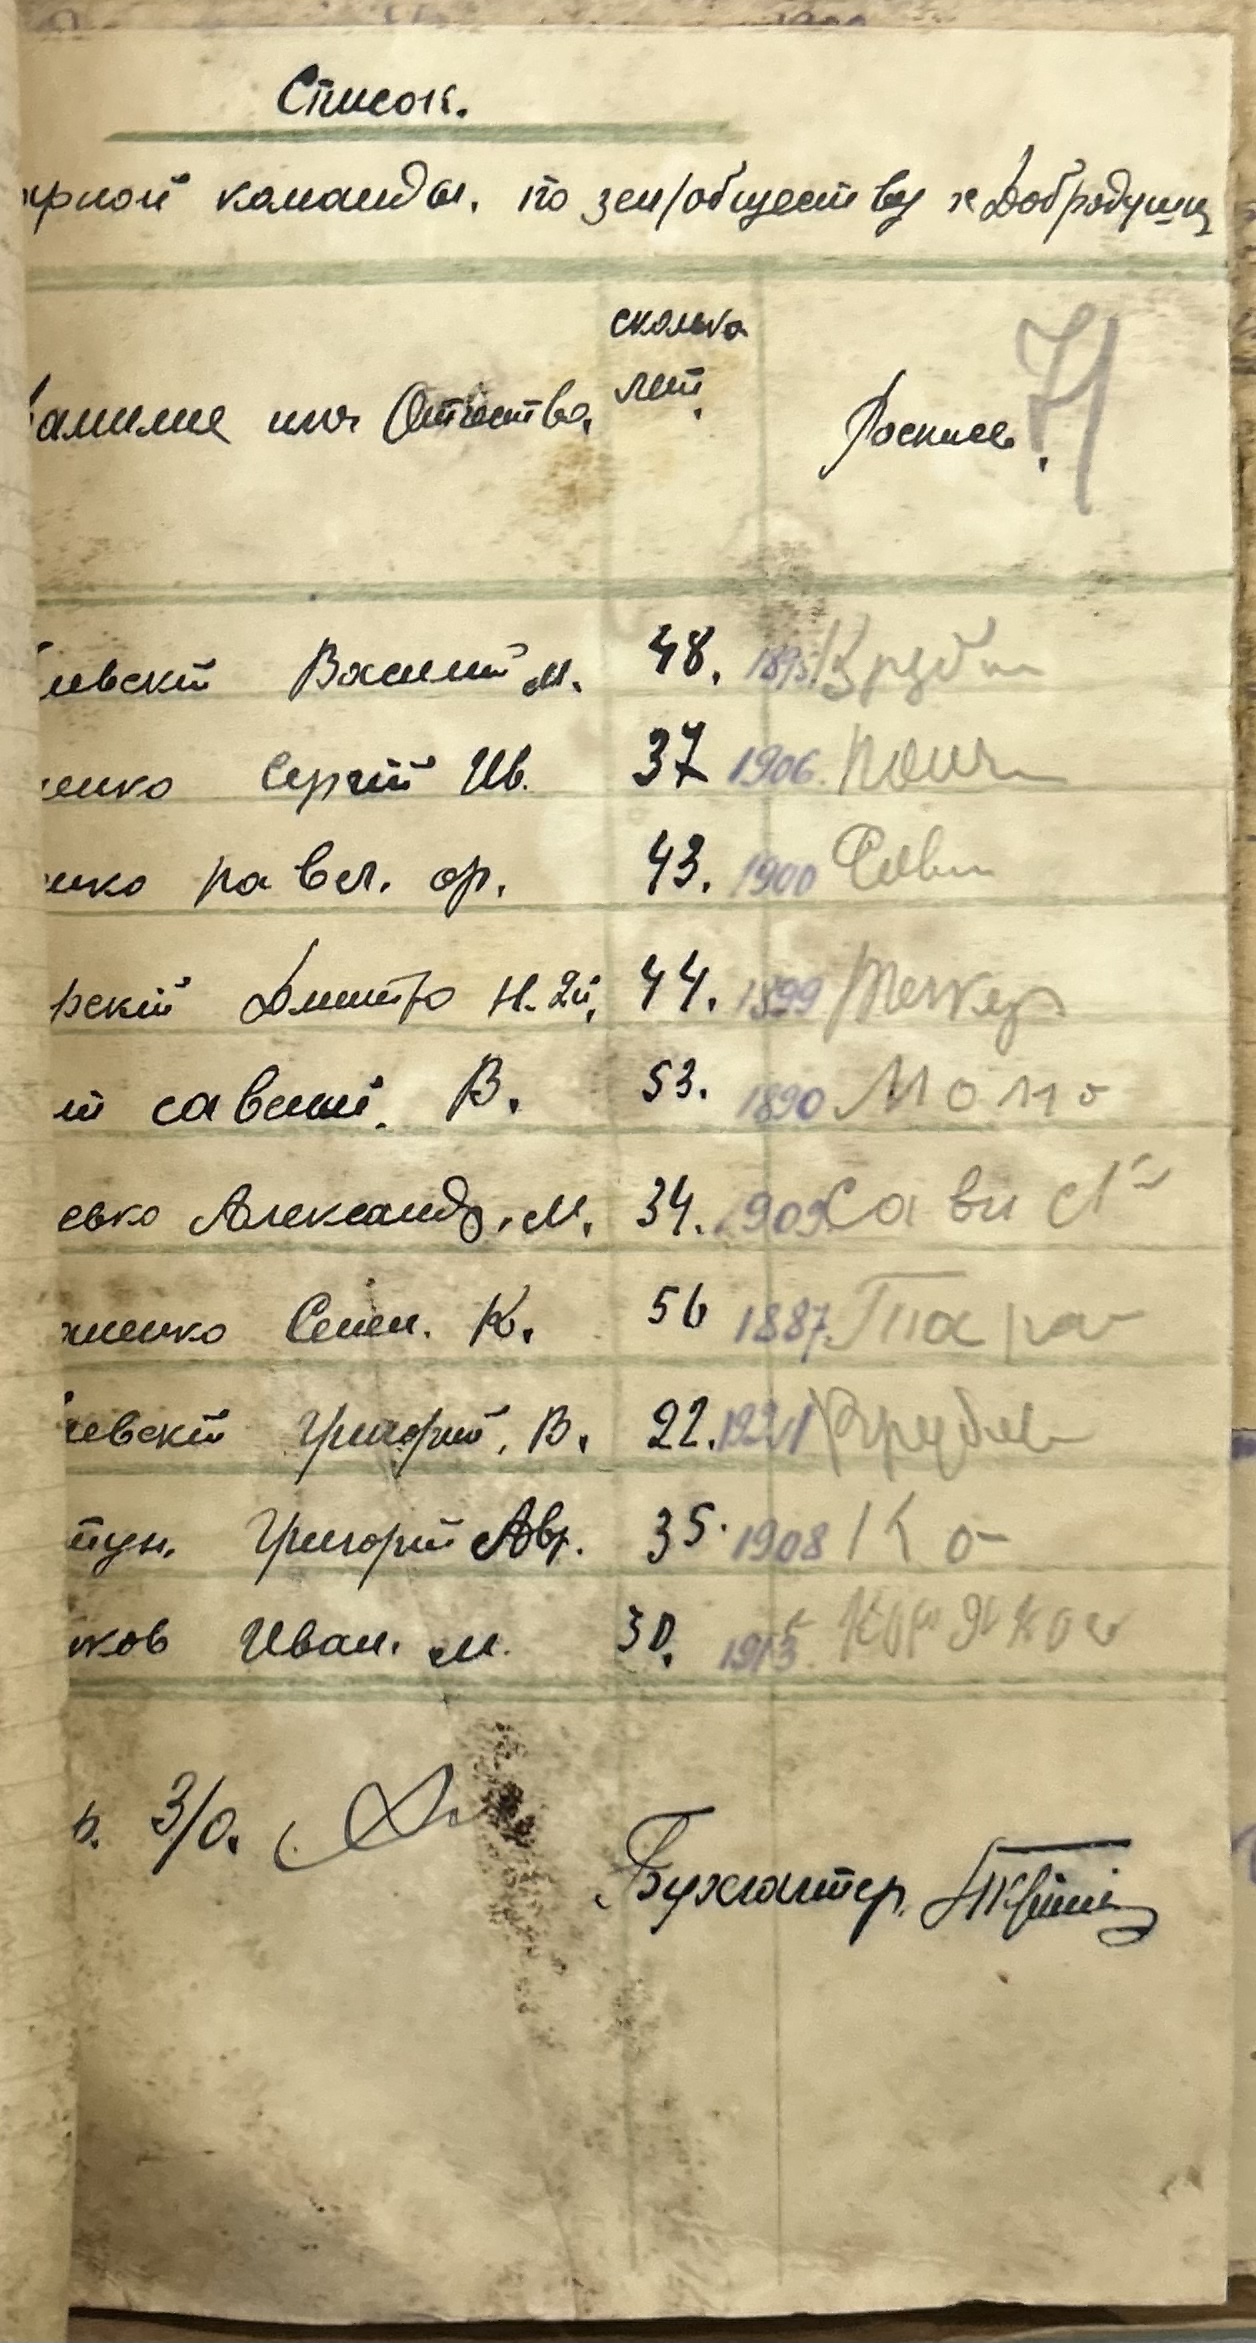 Список.
арной команды. по зем/обществу х Добродушн
амилие имя Отчество.
сколько
лет.
Роспись.
71
левскій Василий М. 48. 1895
енко Сергій Ив. 37 1906.
енко павел. ор. 43. 1900
рскій Дмитро Н. 2й. 44. 1899
ий савелий. В. 53. 1890 Моло
евко Александр. М. 34. 1909
аненко Семен. К. 56 1887. Тара
левскій Григорий. В. 22. 1921 Врублев
тун. Григорій Авр. 35. 1908 Ко
ков Иван. М. 30. 1913
р. З/О.
Бухгалтер.